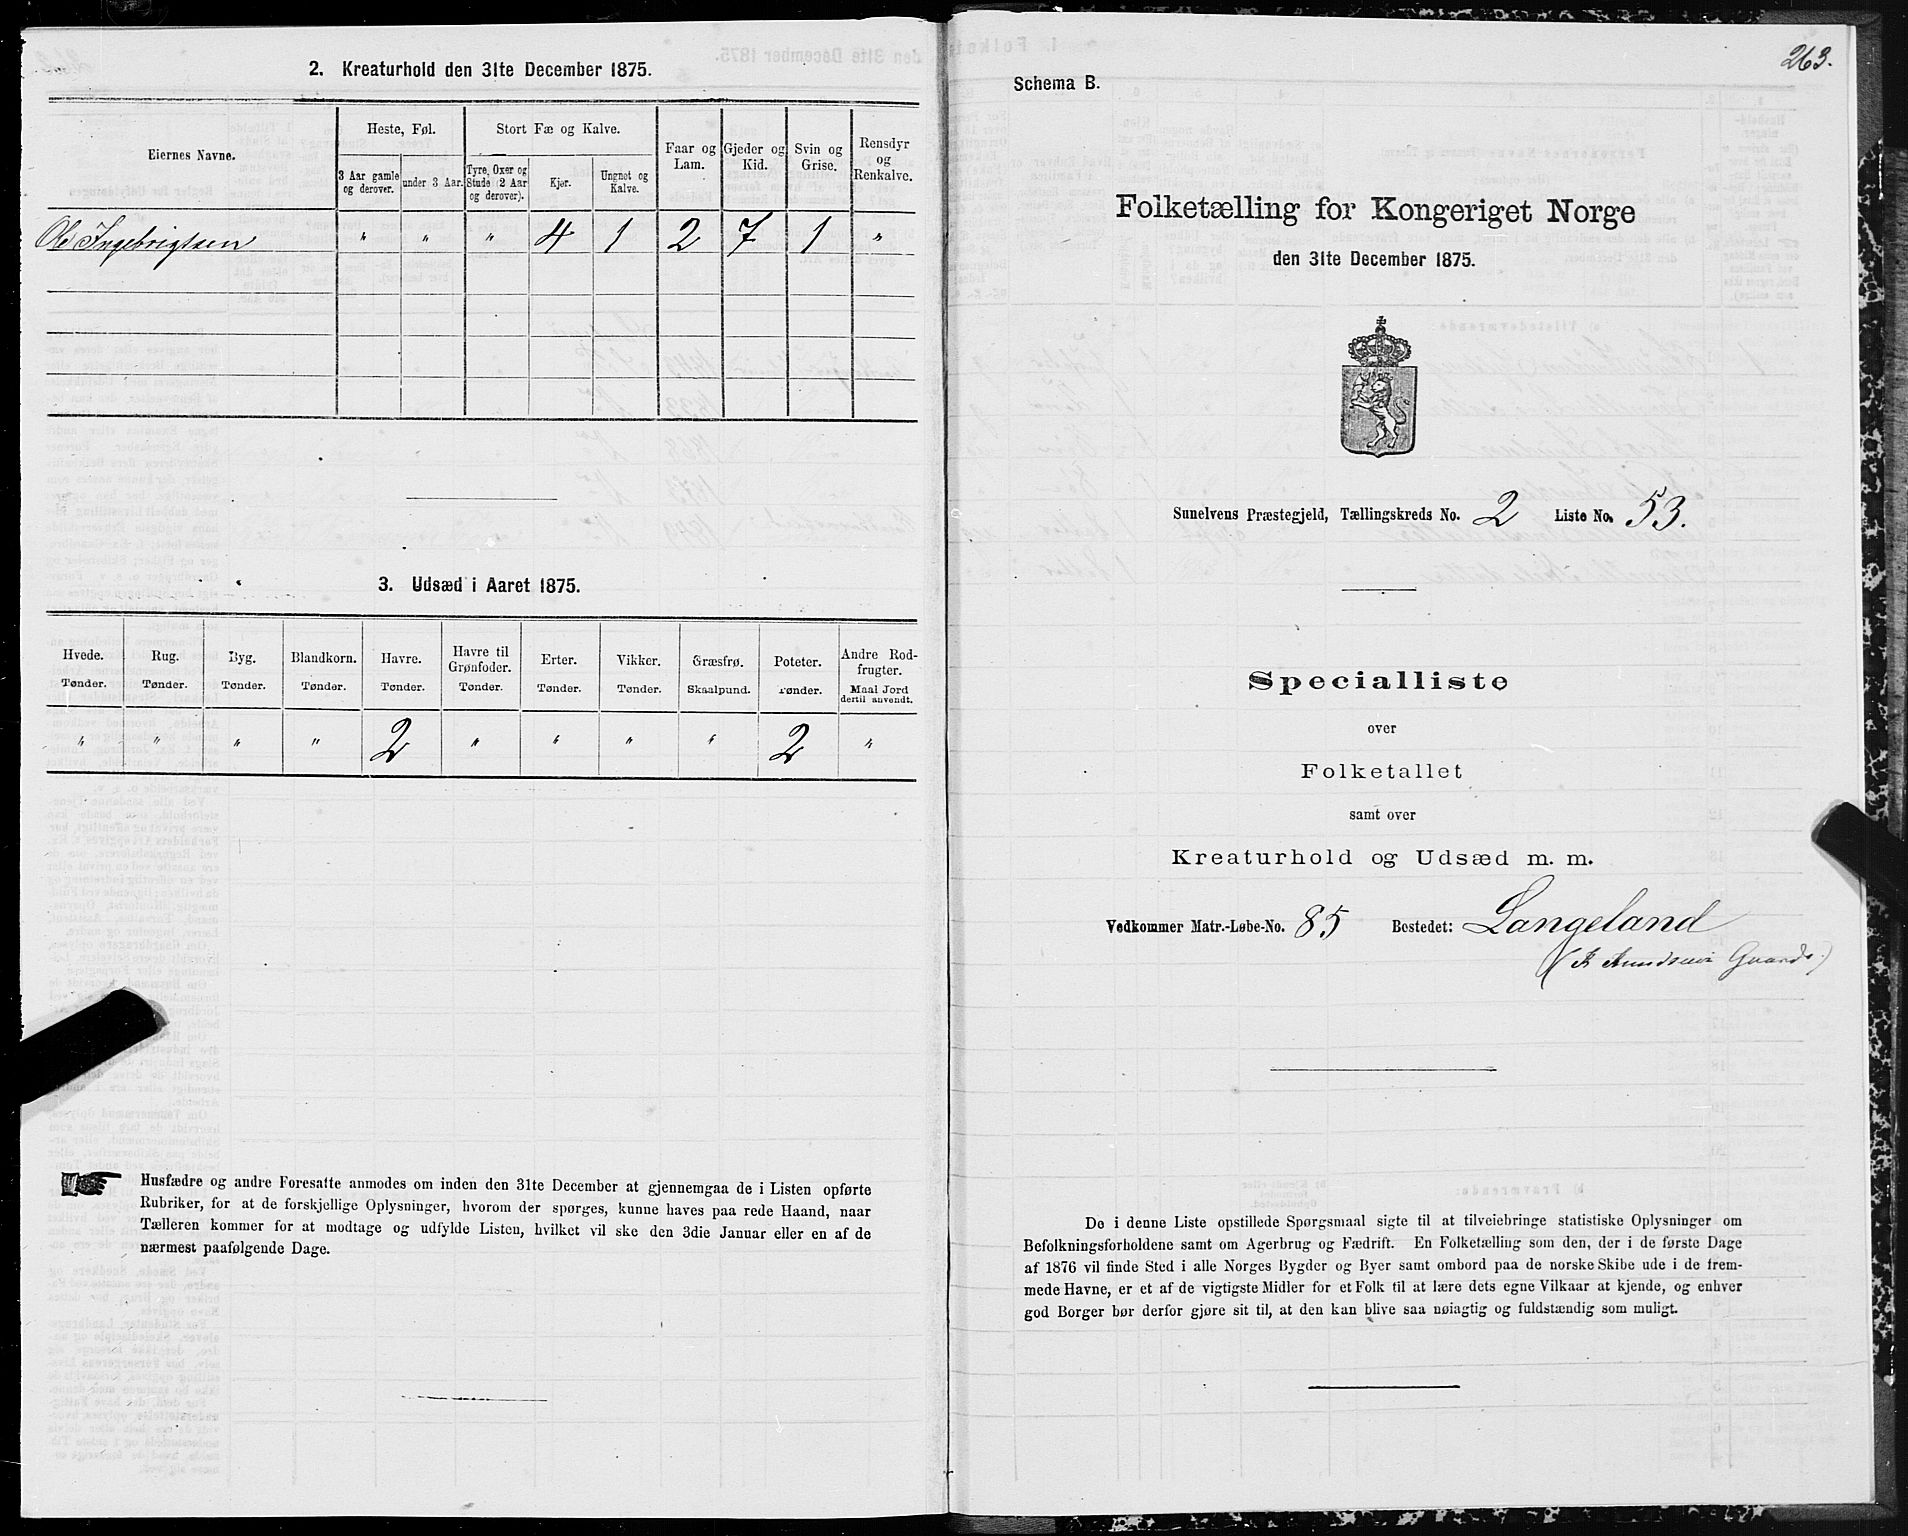 2. Kreaturhold den 31te December 1875.
Eiernes Navne.
Heste, Føl.
Stort Fæ og Kalve.
Faar og Lam.
Gjeder og Kid.
Svin og Grise.
Rensdyr og Renkalve.
3 Aar gamle og derover.
under 3 Aar.
Tyre, Oxer og Stude (2 Aar og derover).
Kjør.
Ungnøt og Kalve.
Ole Ingebrigtsen " " " 4 1 2 7 1 "
3. Udsæd i Aaret 1875.
Hvede. Rug. Byg. Blandkorn. Havre. Havre til Grønfoder. Erter. Vikker. Græsfrø. Poteter. Andre Rodfrugter.
Tønder. Tønder. Tønder. Tønder. Tønder. Tønder. Tønder. Tønder. Skaalpund. Tønder. Maal Jord dertil anvendt.
" " " " 2 " " " " 2 "
Husfædre og andre Foresatte anmodes om inden den 31te December at gjennemgaa de i Listen opførte
Rubriker, for at de forskjellige Oplysninger, hvorom der spørges, kunne haves paa rede Haand, naar
Tælleren kommer for at modtage og udfylde Listen, hvilket vil ske den 3die Januar eller en af de
nærmest paafølgende Dage.
263.
Schema B.
Folketælling for Kongeriget Norge
den 31te December 1875.
Sunelvens Præstegjeld, Tællingskreds No. 2 Liste No. 53.
Specialliste
over
Folketallet
samt over
Kreaturhold og Udsæd m. m.
Vedkommer Matr.-Løbe-No. 85 Bostedet: Langeland
De i denne Liste opstillede Spørgsmaal sigte til at tilveiebringe statistiske Oplysninger om
Befolkningsforholdene samt om Agerbrug og Fædrift. En Folketælling som den, der i de første Dage
af 1876 vil finde Sted i alle Norges Bygder og Byer samt ombord paa de norske Skibe ude i de frem-
mede Havne, er et af de vigtigste Midler for et Folk til at lære dets egne Vilkaar at kjende, og enhver
god Borger bør derfor gjøre sit til, at den kan blive saa nøiagtig og fuldstændig som muligt.